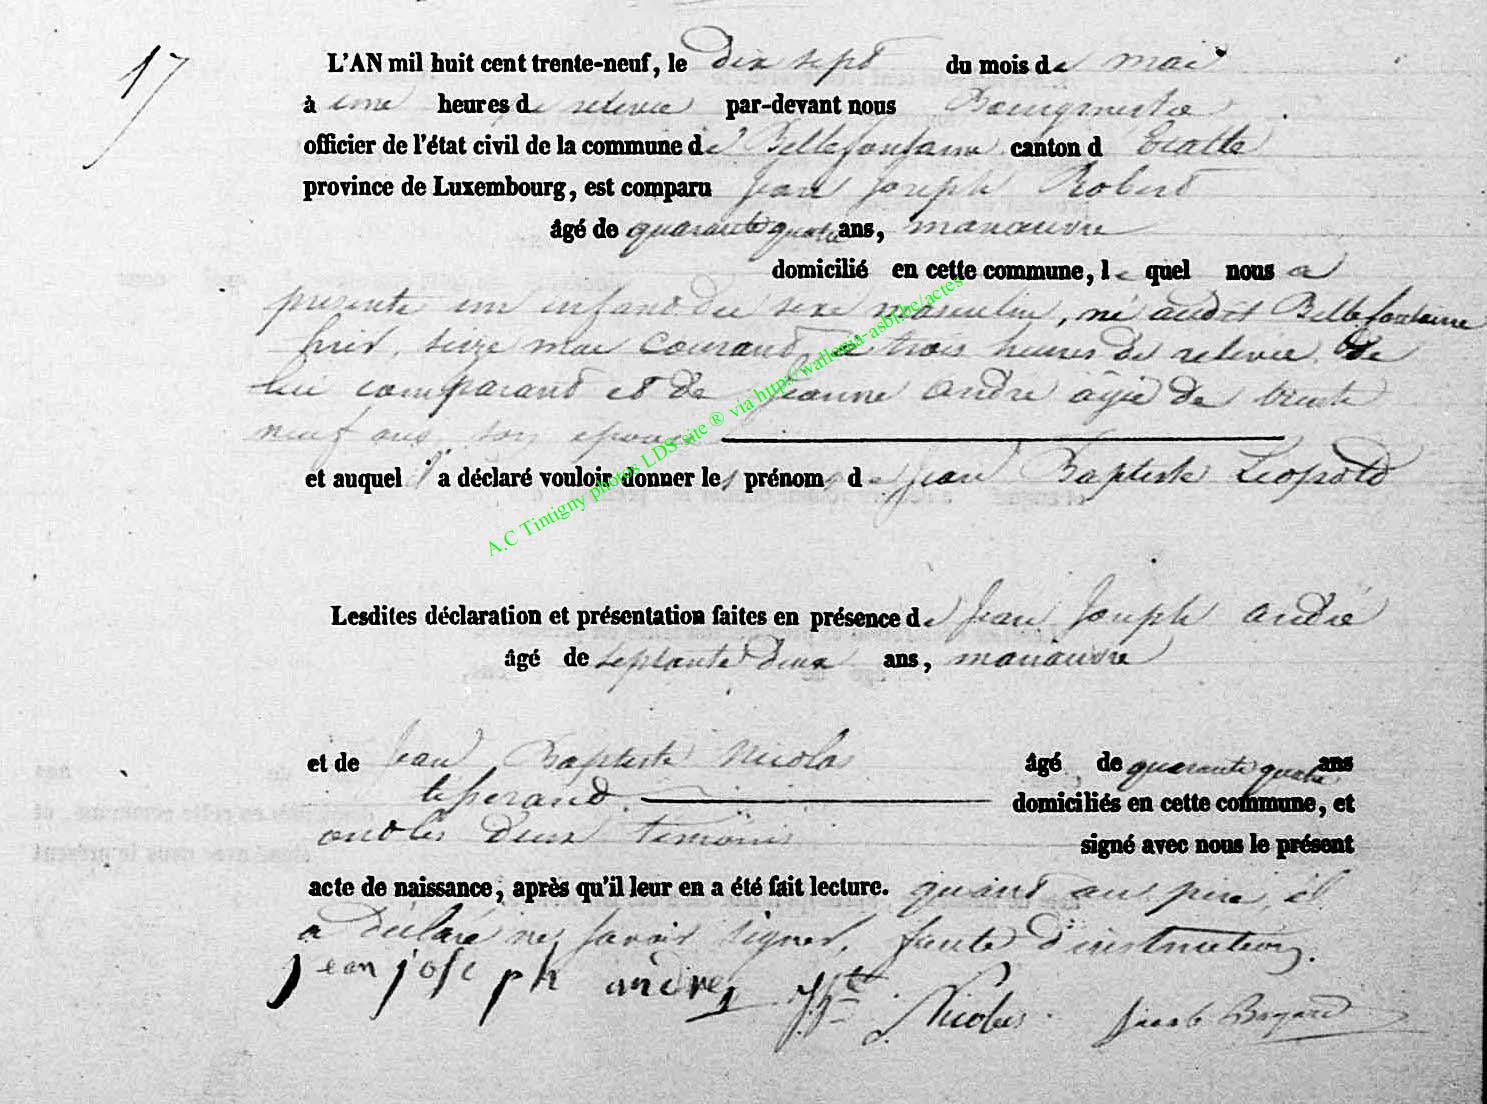 17
L'AN mil huit cent trente-neuf, le dix sept du mois de mai
à une heures de relevée par-devant nous Bourgmestre
officier de l'état civil de la commune de Bellefontaine canton d' Etalle
province de Luxembourg, est comparu Jean Joseph Robert
âgé de quarante quatre ans, manœuvre
domicilié en cette commune, le quel nous a
présenté un enfant du sexe masculin, né audit Bellefontaine
hier, seize mai courant, à trois heures de relevée, de
lui comparant et de Jeanne André âgée de trente
neuf ans, son épouse
et auquel il a déclaré vouloir donner les prénoms de Jean Baptiste Léopold
Lesdites déclaration et présentation faites en présence de Jean Joseph André
âgé de septante deux ans, manœuvre
et de Jean Baptiste Nicolas âgé de quarante quatre ans
tisserand. domiciliés en cette commune, et
ont les deux témoins signé avec nous le présent
acte de naissance, après qu'il leur en a été fait lecture. quant au père, il
a déclaré ne savoir signer, faute d'instruction.
jean joseph andrez J. Bte Nicolas Jacob Bayard
A.C Tintigny photos LDS site ® via http//wallonia-asbl.be/actes